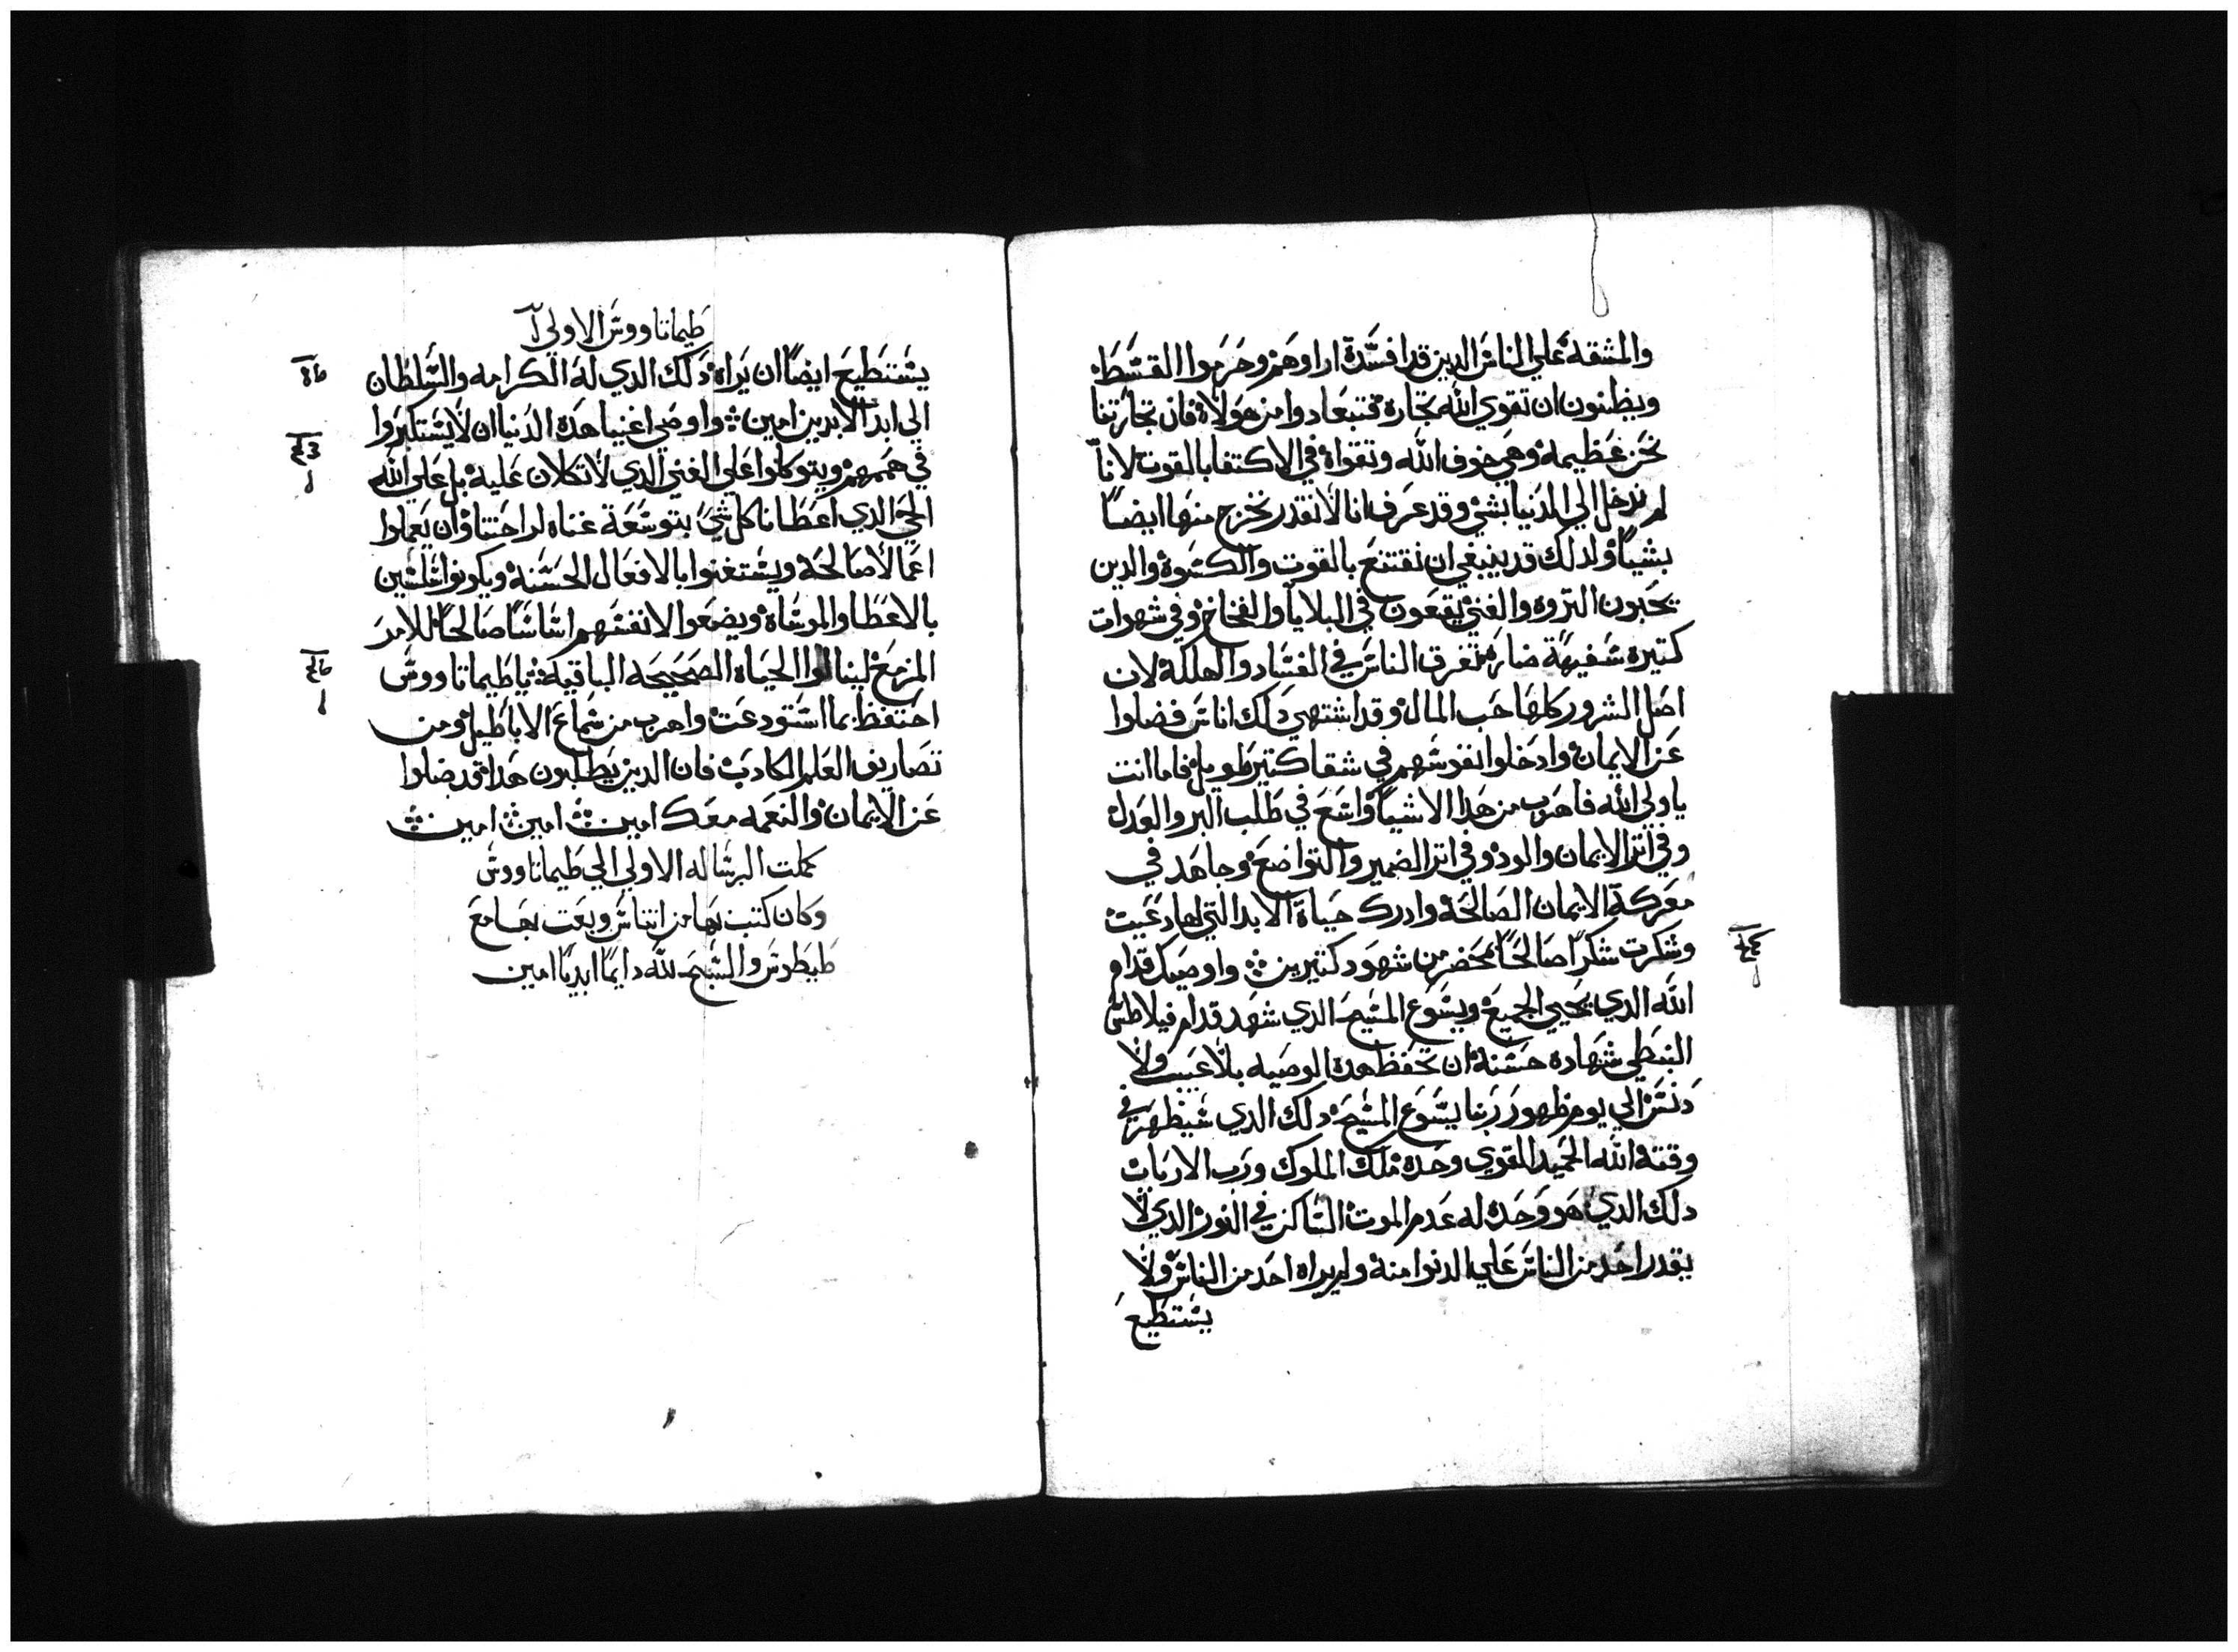 والمشقة علي الناس الدين قد افسدة اراوهم وحرموا القسط
ويظنون ان تقوي الله تجارة فتبعادوا من هولاة فان تجارتنا
نحن عظيمه وهي خوف الله وتقواة في الاكتفا بالقوت لانا
لم ندخل الي الدنيا بشي وقد عرف انا لا نقدر نخرج منها ايضا
بشيا ولدلك قد ينبغي ان نقتنع بالقوت والكسوة والدين
يحبون التروه والغني يقعون في البلايا والفخاخ وفي شهوات
كتيرة سفيهة ضارة تغرق الناس في الفساد والهلكة لان
اصل الشرور كلها حب المال وقد اشتهي دلك اناس فضلوا
عن الايمان وادخلوا نفوسهم في شقا كتير طويل فاما انت
يا ولي الله فاهرب من هدا الاشيا واسع في طلب البر والعدل
وفي اتر الايمان والود وفي اتر الضمير والتواضع وجاهد في
معركة الايمان الصالحة وادرك حياة الابد التي لها دعيت
وشكرت شكرا صالحا بمحضر من شهود كتيرين واوصيك قدام
الله الدي يحيي الجميع ويسوع المسيح الدي شهد قدام فيلاطس
النبطي شهاده حسنة ان تحفظ هدة الوصيه بلا عيب ولا
دنس الي يوم ظهور ربنا يسوع المسيح دلك الدي سيظهر في
وقتة الله الحميد القوي وحدة ملك الملوك ورب الارباب
دلك الدي هو وحدة له عدم الموت الساكن في النور الدي لا
يقدر احد من الناس علي الدنوا منة ولم يراه احد من الناس ولا
يستطيع
طيماتاووس الاولي
يستطيع ايضا ان يراة دلك الدي له الكرامه والسلطان
الي ابد الابدين امين واوصي اغنيا هدة الدنيا ان لا يستكبروا
في هممهم ويتوكلوا علي الغني الدي لا تكلان عليه بل علي الله
الحي الدي اعطانا كل شي بتوسعة غناه لراحتنا وان يعملوا
اعمالا صالحة ويستغنوا بالافعال الحسنة ويكونوا سلسين
بالاعطا والموساة ويضعوا لانفسهم اساسا صالحا للامر
المزمع لينالوا الحياة الصحيحه الباقية يا طيماتاووس
احتفظ بما استودعت واهرب من سماع الاباطيل ومن
تصاريف العلم الكادب فان الدين يطلبون هدا قد ضلوا
عن الايمان والنعمه معك امين امين امين
كملت الرساله الاولي الي طيماتاووس
وكان كتب بها من اتناس وبعت بها مع
طيطوس والسبح لله دايما ابديا امين